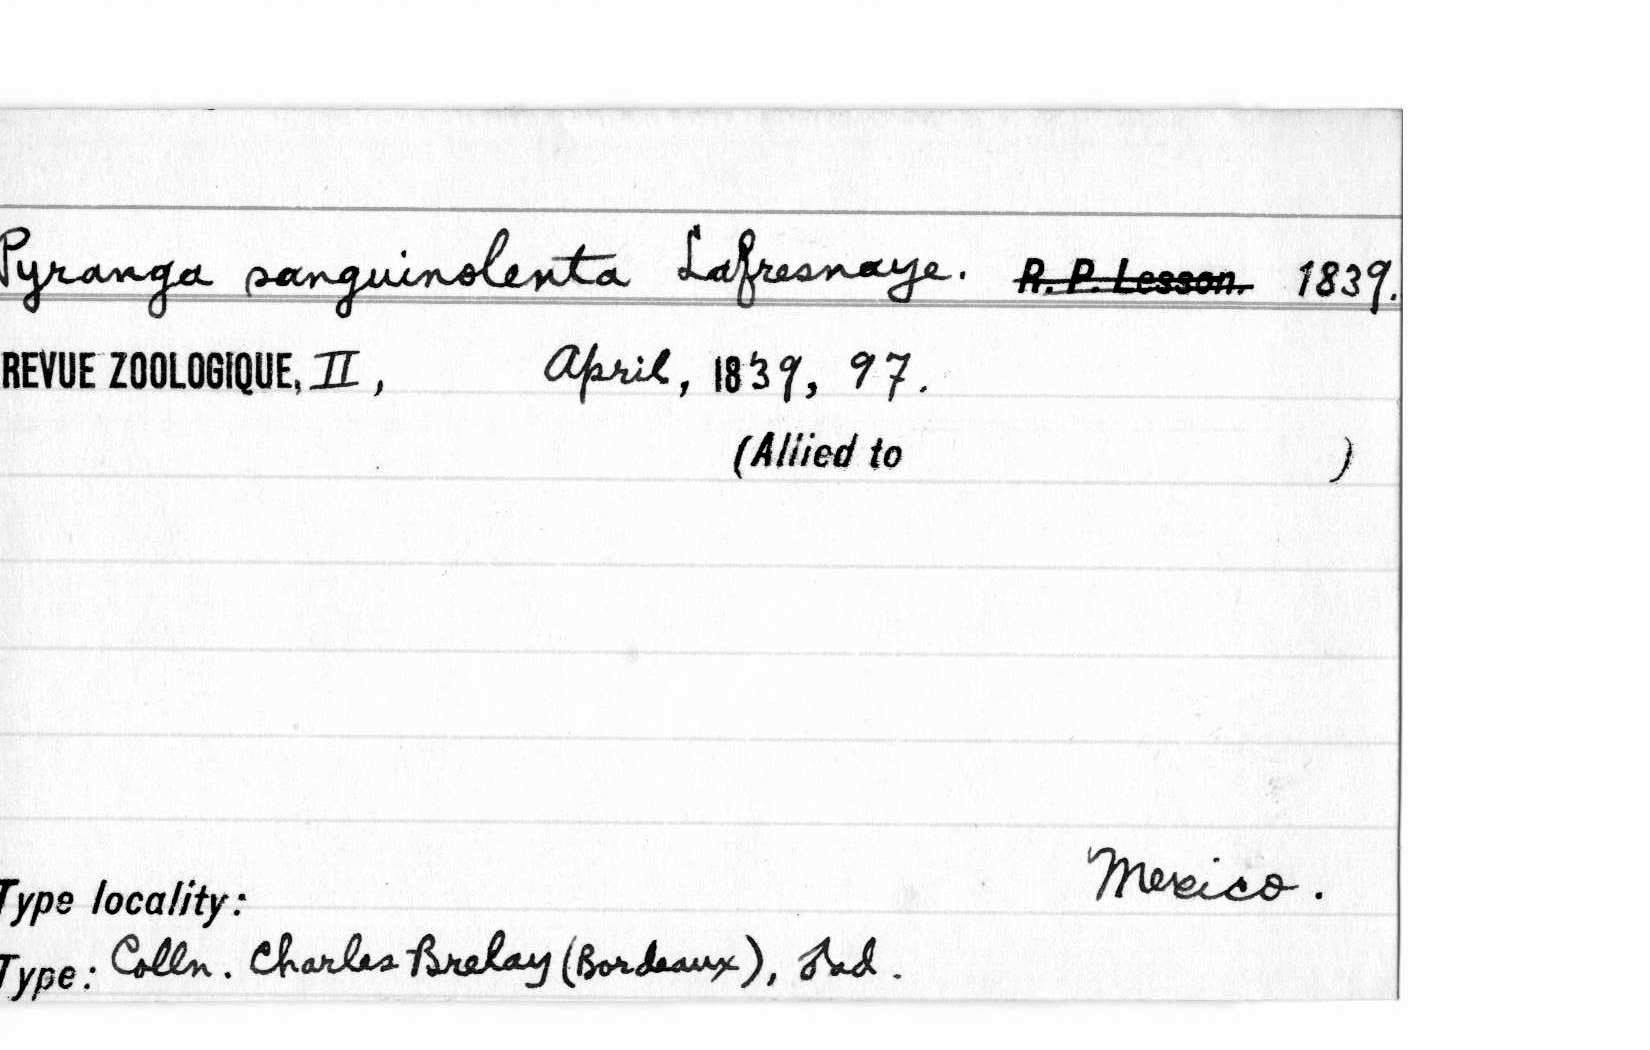 Pyranga sanguinolenta Lafresnaye. R. P. Lesson. 1839.
REVUE ZOOLOGIQUE, II, April, 1839, 97.
(Allied to )
Mexico.
Type locality:
Type: Colln. Charles Brelay (Bordeaux), ♂ad.